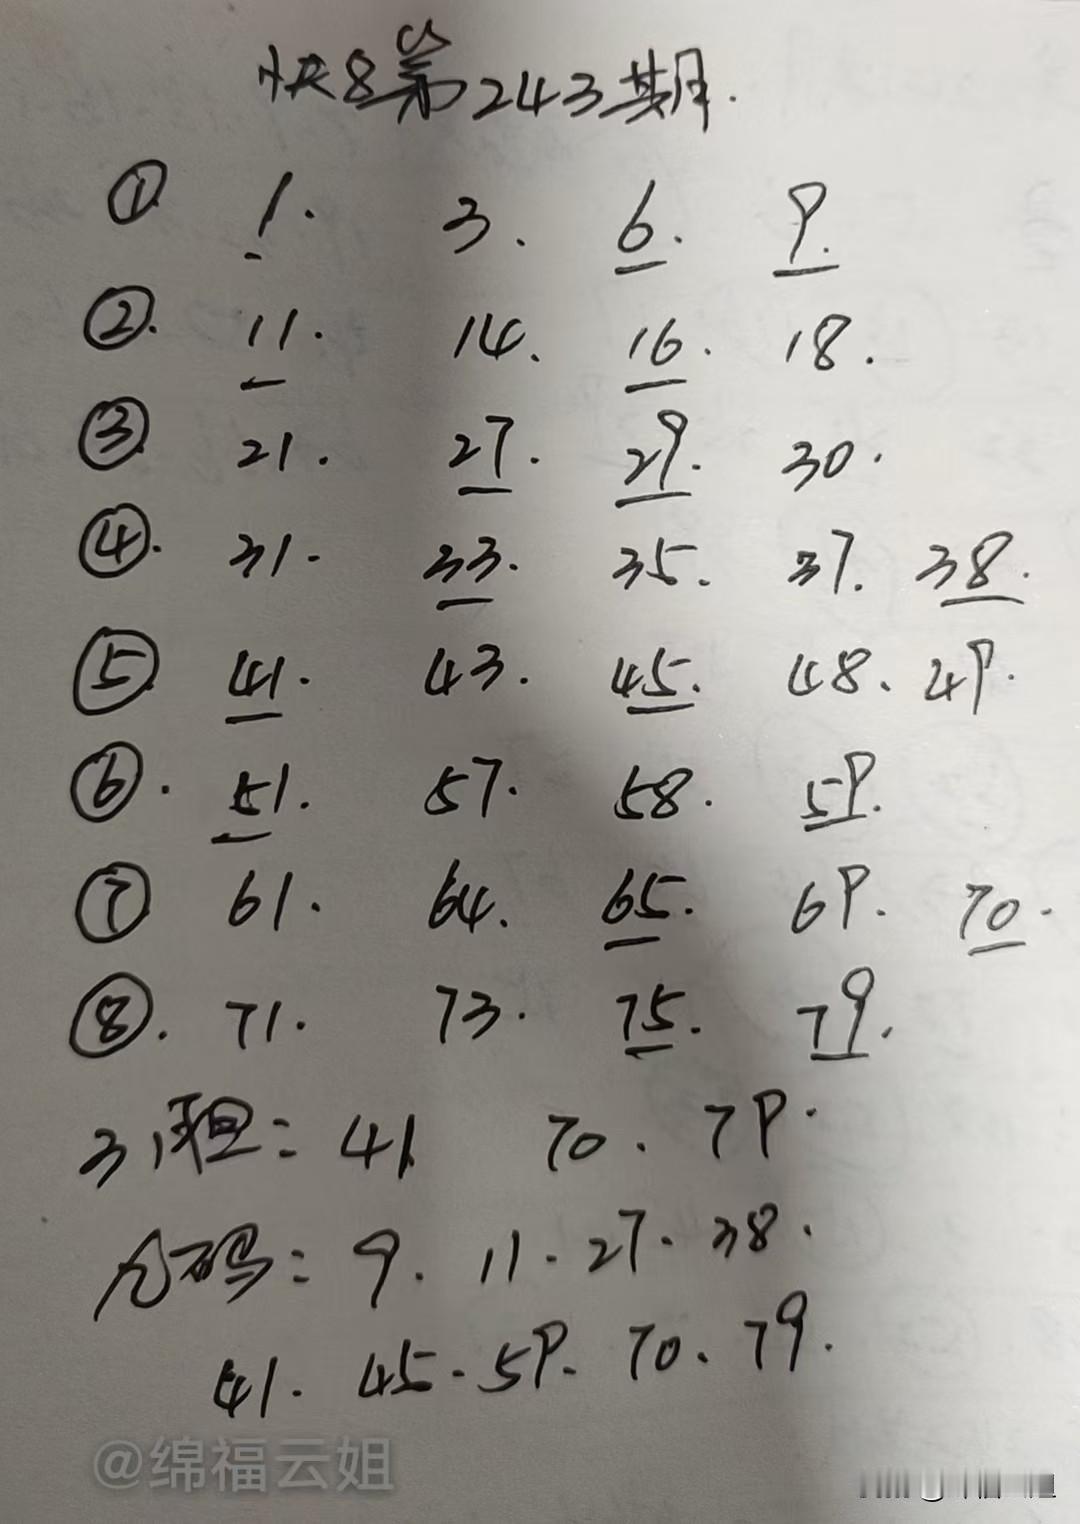 快8第243期.
① 1. 3. 6. 9.
②. 11. 14. 16. 18.
③ 21. 27. 29. 30.
④. 31. 33. 35. 37. 38.
⑤ 41. 43. 45. 48. 49.
⑥. 51. 57. 58. 59.
⑦ 61. 64. 65. 69. 70.
⑧. 71. 73. 75. 79.
3胆: 41 70. 79.
九码: 9. 11. 27. 38.
41. 45. 59. 70. 79.
@绵福云姐